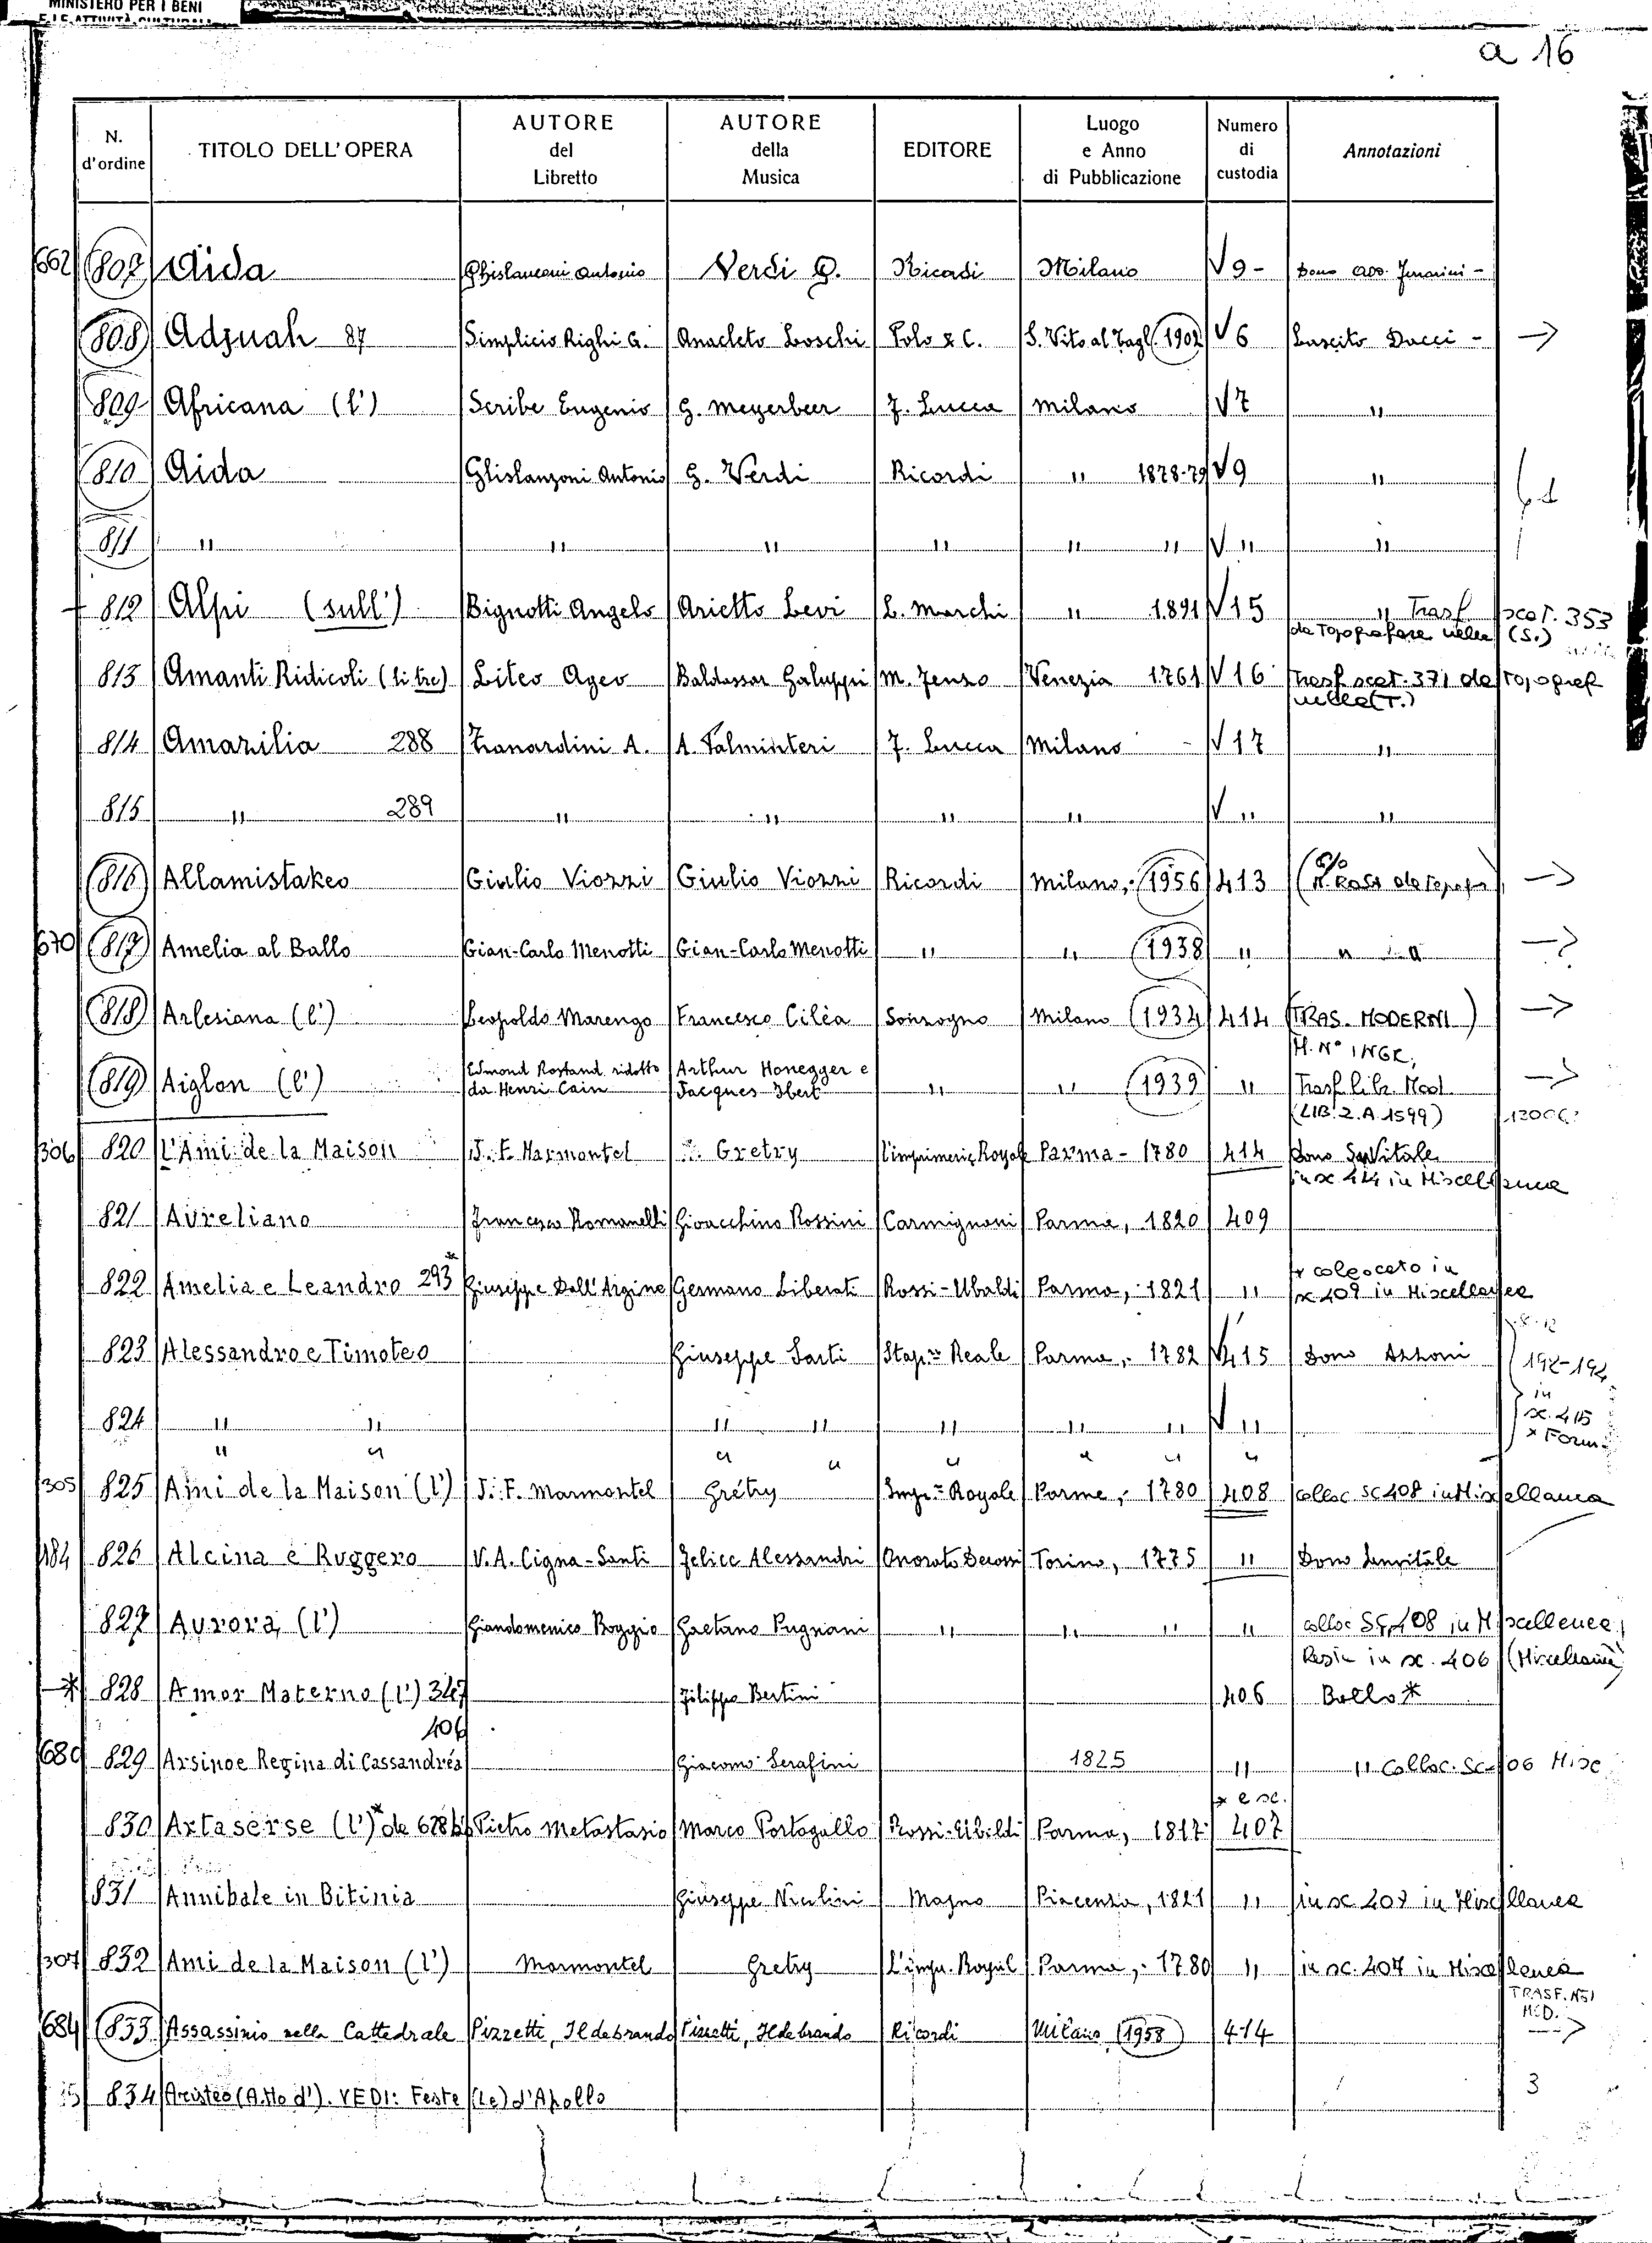 MINISTERO PER I BENI
E LE ATTIVITÀ CULTURALI
a 16
N. d'ordine TITOLO DELL'OPERA AUTORE del Libretto AUTORE della Musica EDITORE Luogo e Anno di Pubblicazione Numero di custodia Annotazioni
662 807 Aida Ghislanzoni Antonio Verdi G. Ricordi Milano V 9 - Dono
808 Adjuah 87 Simplicio Righi G. Anacleto Loschi Polo & C. S. Vito al Tagl. 1902 V 6 Lascito Ducci - →
809 Africana (l') Scribe Eugenio G. Meyerbeer F. Lucca Milano V 7 "
810 Aida Ghislanzoni Antonio G. Verdi Ricordi " 1878-79 V 9 "
811 " " " " " " V " "
812 Alpi (sull') Bignotti Angelo Arietto Levi L. Marchi " 1891 V 15 " Trasf scat. 353
da Topografare nella (S.)
813 Amanti Ridicoli (li tre) Liteo Ageo Baldassar Galuppi M. Fenzo Venezia 1761 V 16 Trasf scat. 371 da Topograf
nella (T.)
814 Amazilia 288 Zanardini A. A. Palminteri F. Lucca Milano - V 17 "
815 " 289 " " " " V " "
816 Allamistakeo Giulio Viozzi Giulio Viozzi Ricordi Milano, 1956 413 →
670 817 Amelia al Ballo Gian-Carlo Menotti Gian-Carlo Menotti " " 1938 " " " →
818 Arlesiana (l') Leopoldo Marengo Francesco Cilèa Sonzogno Milano (1934 414 (TRAS. MODERNI) →
M. N° INGR.
819 Aiglon (l') Edmond Rostand ridotto da Henri Cain Arthur Honegger e Jacques Ibert " " (1939) " Trasf. libr. Mod. →
(LIB. 2. A. 1599)
306 820 L'Ami de la Maison J. F. Marmontel Gretry l'imprimerie Royale Parma - 1780 414 Dono Sanvitale
in sc. 414 in Miscellanea
821 Aureliano Francesco Romanelli Gioacchino Rossini Carmignani Parma, 1820 409
822 Amelia e Leandro 293 * Giuseppe Dall'Argine Germano Liberati Rossi-Ubaldi Parma, 1821 " * collocato in
sc 409 in Miscellanea
823 Alessandro e Timoteo Giuseppe Sarti Stap.ia Reale Parma, 1782 V 415 Dono Azzoni 192-194
in
sc. 415
824 " " " " " " " V "
" " " " " " " "
305 825 Ami de la Maison (l') J. F. Marmontel Grétry Imp.ie Royale Parme, 1780 408 colloc. sc 408 in Miscellanea
184 826 Alcina e Ruggero V. A. Cigna-Santi Felice Alessandri Onorato Derossi Torino, 1775 " Dono Sanvitale
827 Aurora (l') Giandomenico Boggio Gaetano Pugnani " " " " colloc Sc. 408 in Miscellanea
Resta in sc. 406 (Miscellanea)
* 828 Amor Materno (l') 347 Filippo Bertini 406 Ballo *
406
680 829 Arsinoe Regina di Cassandréa Giacomo Serafini 1825 " " Colloc. Sc. 406 Misc
* e sc.
830 Artaserse (l') * da 678 Pietro Metastasio Marco Portogallo Rossi-Ubaldi Parma, 1817 407
831 Annibale in Bitinia Giuseppe Nicolini Majno Piacenza, 1821 " in sc 407 in Miscellanea
307 832 Ami de la Maison (l') Marmontel Gretry L'imp. Royal Parma, 1780 " in sc. 407 in Miscellanea
TRASF. NEI
MOD.
684 833 Assassinio nella Cattedrale Pizzetti, Ildebrando Pizzetti, Ildebrando Ricordi Milano (1958) 414 →
834 Aristeo (Atto d'). VEDI: Feste (Le) d'Apollo 3